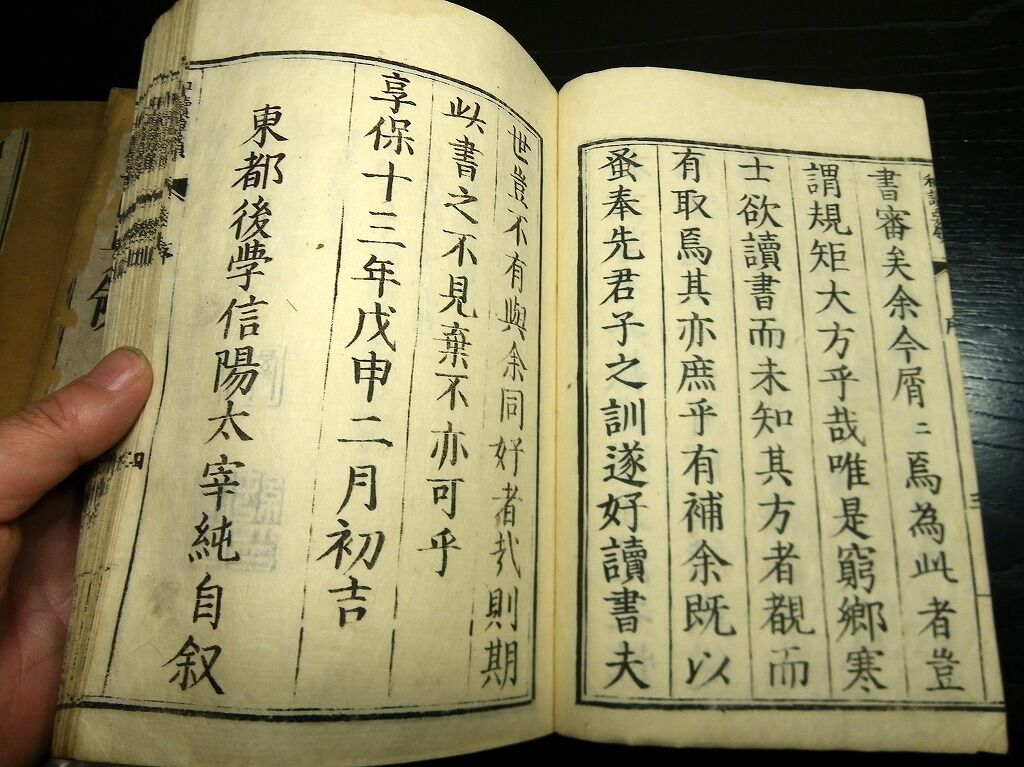 書審矣余今屑二焉為此者豈
謂規矩大方乎哉唯是窮鄉寒
士欲讀書而未知其方者覩而
有取焉其亦庶乎有補余既以
蚤奉先君子之訓遂好讀書夫
世豈不有與余同好者哉則期
此書之不見棄不亦可乎
享保十三年戊申二月初吉
東都後學信陽太宰純自叙